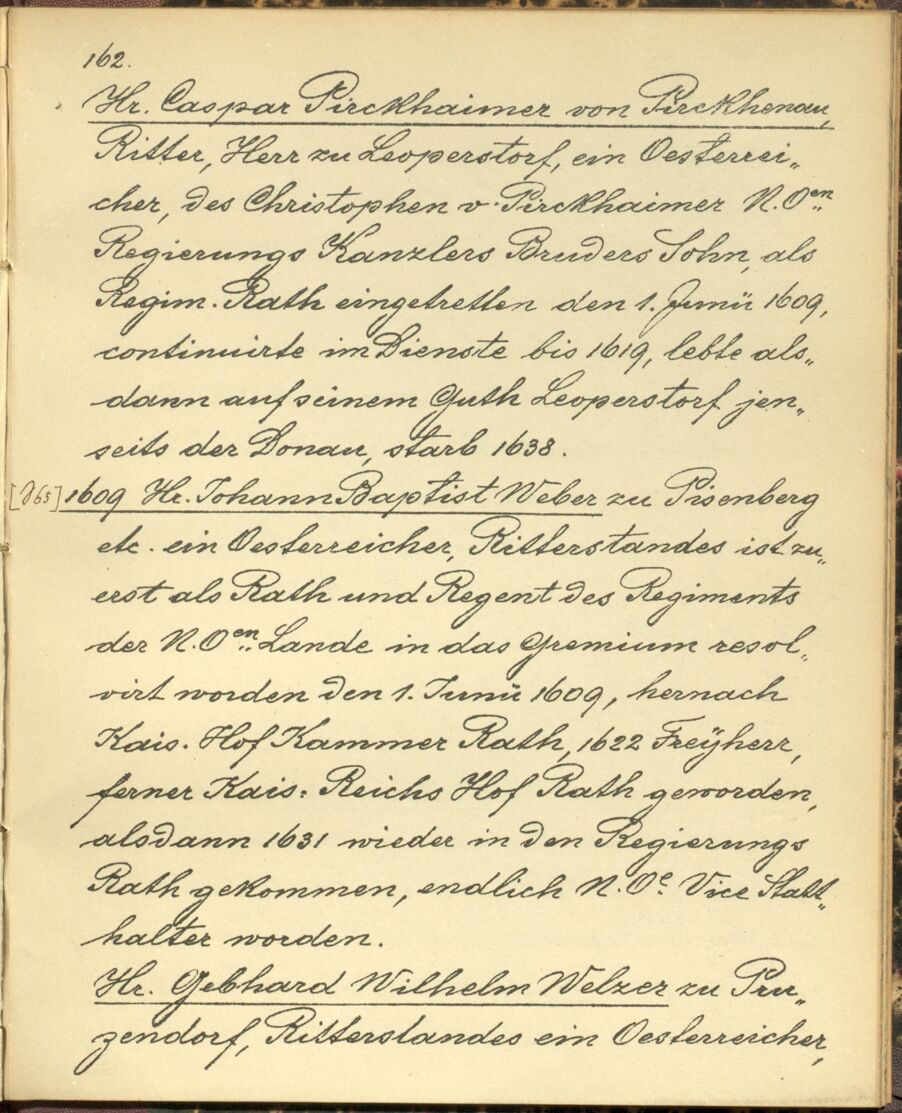 162.
Hr. Caspar Pirckhaimer von Pirckhenau,
Ritter, Herr zu Leoperstorf, ein Oesterrei„
cher, des Christophen v. Pirckhaimer N. Oen.
Regierungs Kanzlers Bruders Sohn, als
Regim. Rath eingetretten den 1. Junii 1609,
continuirte im Dienste bis 1619, lebte als„
dann auf seinem Guth Leoperstorf jen„
seits der Donau, starb 1638.
[965] 1609 Hr. Johann Baptist Weber zu Pisenberg
etc. ein Oesterreicher, Ritterstandes ist zu„
erst als Rath und Regent des Regiments
der N. Oen. Lande in das Gremium resol„
virt worden den 1. Junii 1609, hernach
Kais. Hof Kammer Rath, 1622 Freÿherr,
ferner Kais: Reichs Hof Rath geworden,
alsdann 1631 wieder in den Regierungs
Rath gekommen, endlich N. Oe. Vice Statt„
halter worden.
Hr. Gebhard Wilhelm Welzer zu Pru„
zendorf, Ritterstandes ein Oesterreicher,